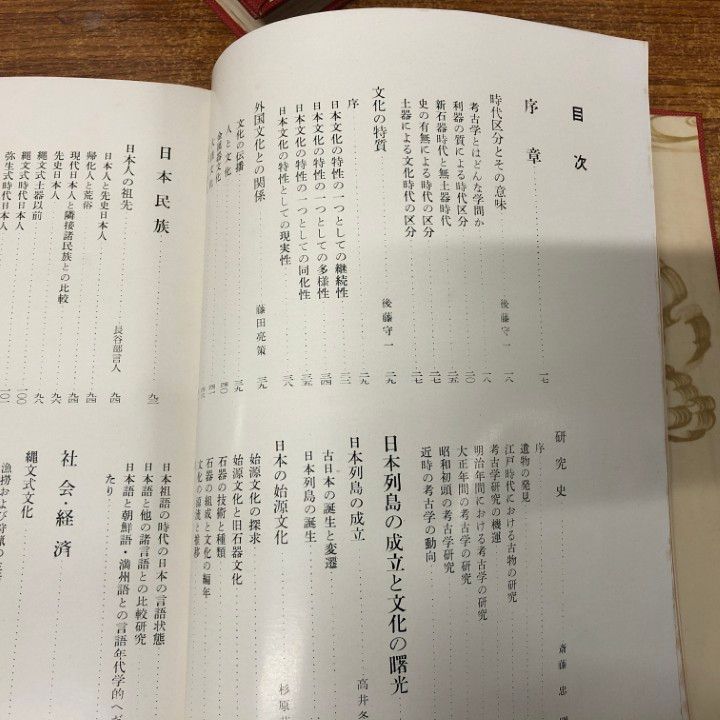 目次
序章 一七
時代区分とその意味 後藤守一 一八
考古学とはどんな学問か 一八
利器の質による時代区分 二〇
新石器時代と無土器時代 二五
史の有無による時代の区分 二七
土器による文化時代の区分 二七
文化の特質 後藤守一 二九
序 二九
日本文化の特性の一つとしての継続性 三二
日本文化の特性の一つとしての多様性 三四
日本文化の特性の一つとしての同化性 三五
日本文化の特性としての現実性 三八
外国文化との関係 藤田亮策 三九
文化の伝播 三九
人と文化 四〇
金属器文化
研究史 斎藤忠
序
遺物の発見
江戸時代における古物の研究
考古学研究の機運
明治年間における考古学の研究
大正年間の考古学の研究
昭和初頭の考古学研究
近時の考古学の動向
日本列島の成立と文化の曙光
日本列島の成立 高井冬
古日本の誕生と変遷
日本列島の誕生
日本の始源文化 杉原
始源文化の探求
始源文化と旧石器文化
石器の技術と種類
石器の組成と文化の編年
日本民族 九三
日本人の祖先 長谷部言人 九四
日本人と先史日本人 九四
帰化人と荒俗 九四
現代日本人と隣接諸民族との比較 九六
先史日本人 九六
縄文式土器以前 九八
縄文式時代日本人 一〇〇
弥生式時代日本人 一〇一
日本祖語の時代の日本の言語状態
日本語と他の諸言語との比較研究
日本語と朝鮮語・満州語との言語年代学的へだ
たり
社会・経済
縄文式文化
漁撈および狩猟の